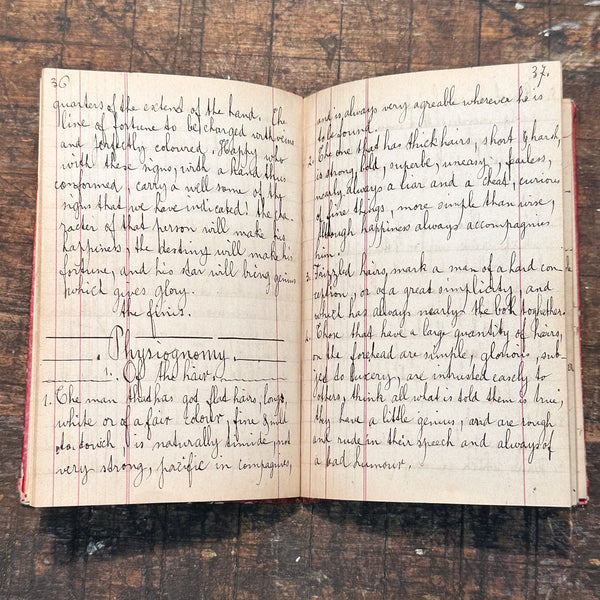 36
quarters of the extend of the hand. The
line of fortune to be charged with veins
and perfectly coloured. Happy who
with these signs, with a hand thus
conformed, carry a well some of the
signs that we have indicated! the cha
racter of that person will make his
happiness, the destiny will make his
fortune, and his star will bring genius
which gives glory.
The finis.
Physiognomy.
1. Of the hair.
1. The man that has got flat hairs, long,
white or of a fair colour, fine & mild
to touch, is naturally timide, not
very strong, pacific in compagnies,
37.
and is always very agreable wherever he is
to be found.
2. The one that has thick hairs, short & harsh,
is strong, bold, superbe, uneasy, fearless,
nearly always a liar and a cheat, curious
of fine things, more simple than wise,
although happiness always accompagnies
him.
3. Frizzled hairs, mark a man of a hard con
ception, or of a great simplicity, and
which has always nearly the both together.
4. Those that have a large quantity of hairs,
on the forehead are simple, glorious, sub-
ject to luxery, are intrusted easely to
others, think all what is told them is true,
they have a little genius, and are rough
and rude in their speech and always of
a bad humour.